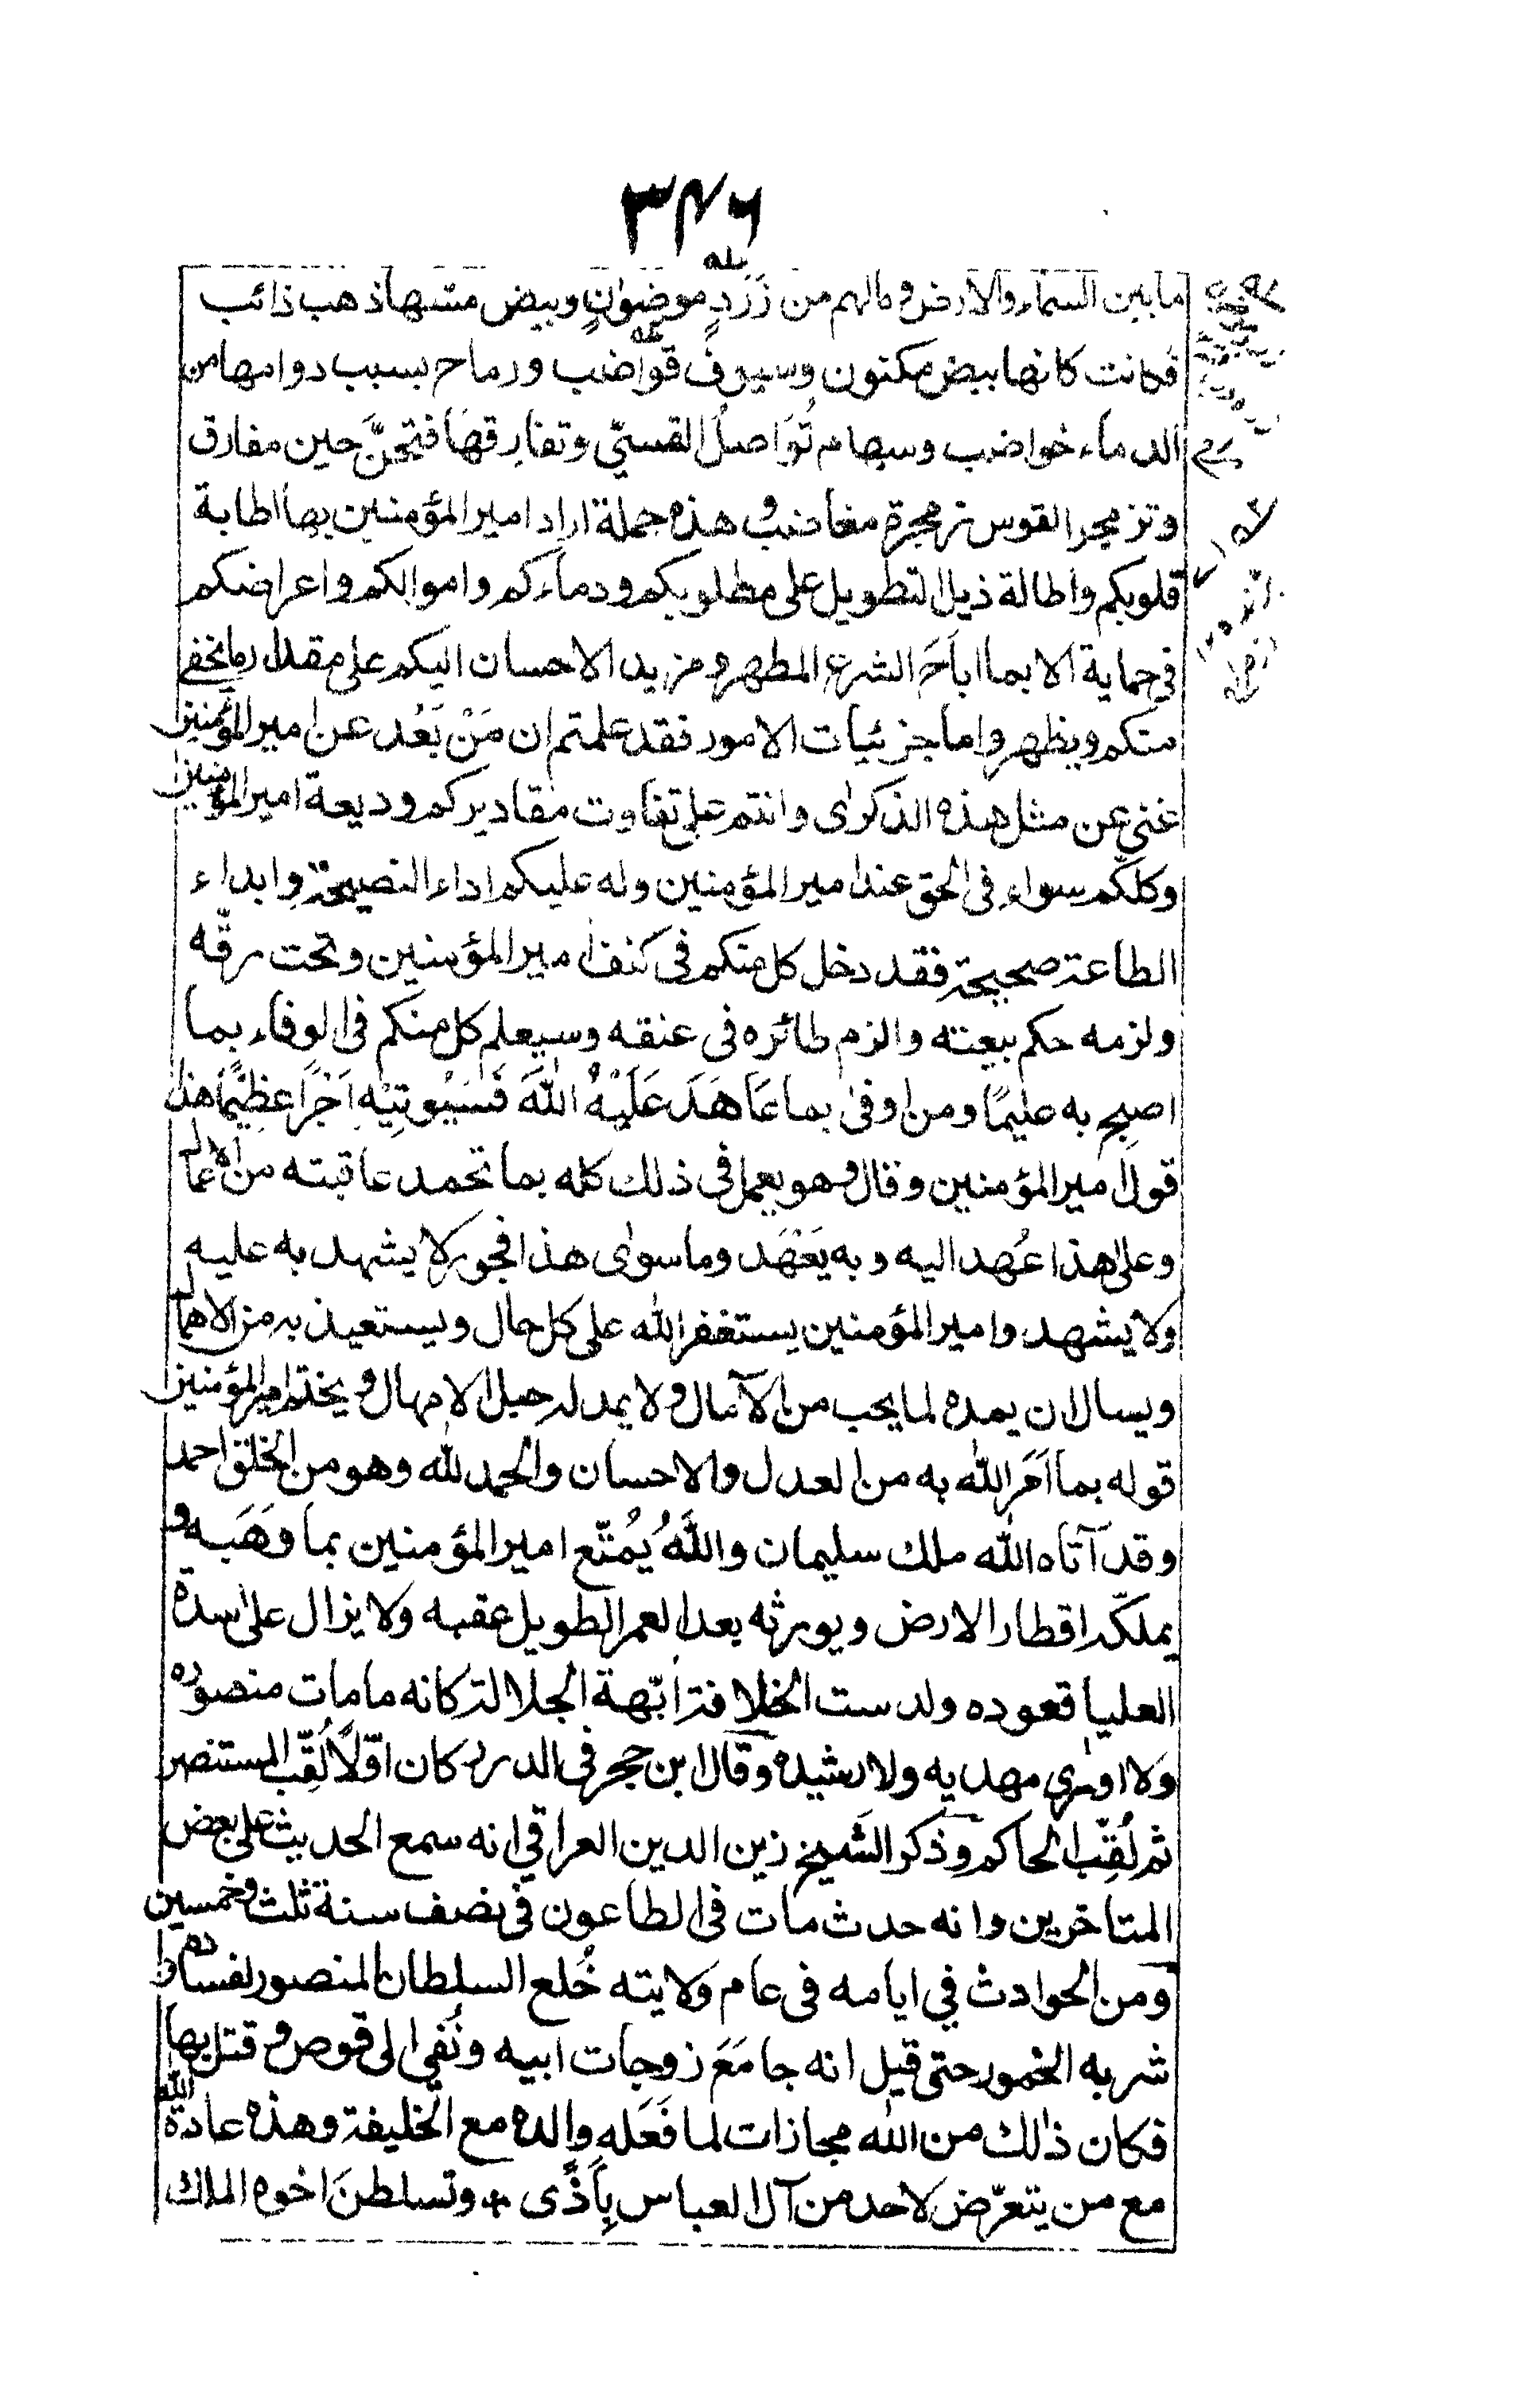 ٣٤٦
ما بين السماء والارض و مالهم من زَرَدٍ موضونٍ وبيض مسّها ذهب ذائب
فكانت كانها بيض مكنون وسيوف قواضب ورماح بسبب دوامها من
الدماء خواضب وسهام تُوَاصلُ القسيّ وتفارقها فتحنّ حين مفارق
وتزمجر القوس زمجرة مغاضب و هذه جملة اراد امير المؤمنين بها اطابة
قلوبكم واطالة ذيل التطويل على مطلوبكم ودماءكم واموالكم واعراضكم
فى حماية الا بما اباحَ الشرع المطهر و مزيد الاحسان اليكم على مقدار ما يخفى
منكم ويظهر واما جزئيات الامور فقد علمتم ان مَنْ بَعُد عن امير المؤمنين
غنى عن مثل هذه الذكرى وانتم على تفاوت مقاديركم وديعة امير المؤمنين
وكلكم سواء فى الحق عند امير المؤمنين وله عليكم اداء النصيحة وابداء
الطاعة صحيحة فقد دخل كل منكم فى كنف امير المؤمنين وتحت رقّه
ولزمه حكم بيعته والزم طائره فى عنقه وسيعلم كل منكم فى الوفاء بما
اصبح به عليمًا ومن اوفى بما عَاهَدَ عَلَيْهُ اللهَ فَسَيُوتِيْهِ اَجْرًا عَظِيْمًا هذا
قول امير المؤمنين وقال و هو يعمل فى ذلك كله بما تحمد عاقبته من الاعمال
وعلى هذا عُهد اليه و به يَعْهَد وما سوى هذا فجور لا يشهد به عليه
ولا يشهد وامير المؤمنين يستغفر الله على كل حال ويستعيذ به من الاهمال
ويسال ان يمده لما يحب من الآمال و لا يمد له حبل الامهال و يختم امير المؤمنين
قوله بما اَمَر الله به من العدل والاحسان والحمد لله وهو من الخلق احمد
وقد آتاه الله ملك سليمان واللهُ يُمتّع امير المؤمنين بما وَهَبَه و
يملكّه اقطار الارض ويورثه بعد العمر الطويل عقبه ولا يزال على سدة
العليا قعوده ولدست الخلافة ابّهة الجلالة كانه ما مات منصوره
ولا اودى مهديه ولا رشيده وقال ابن حجر فى الدرر كان اوّلاً لُقِّب المستنصر
ثم لُقِّب الحاكم و ذكر الشيخ زين الدين العراقي انه سمع الحديث على بعض
المتاخرين وانه حدث مات فى الطاعون فى نصف سنة ثلث وخمسين
ومن الحوادث في ايامه فى عام ولايته خُلع السلطان المنصور لفساده و
شربه الخمور حتى قيل انه جامَعَ زوجات ابيه ونُفي الى قوص و قتل بها
فكان ذلك من الله مجازات لما فَعَله والده مع الخليفة وهذه عادة الله
مع من يتعرّض لاحد من آل العباس بِاَذًى * وتسلطنَ اخوه الملك